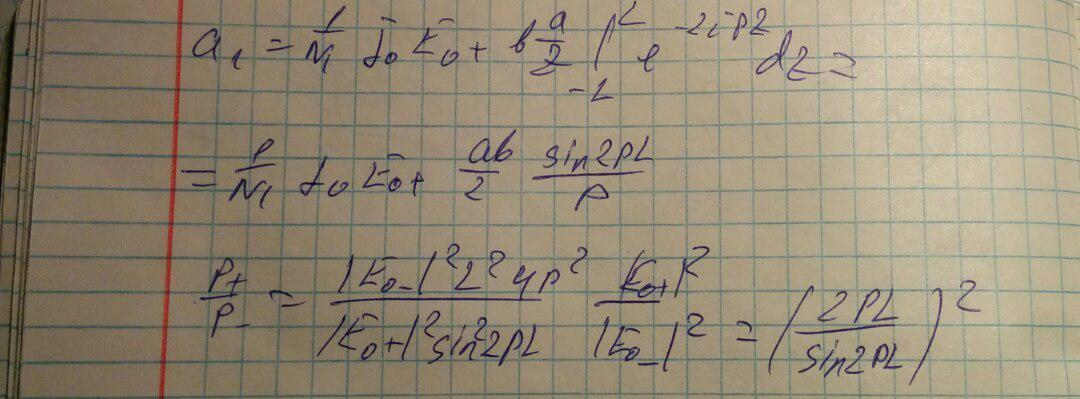 a₁ = 1/N₁ j₀ E₀₊ b a/2 ∫_{-L}^{L} e^{-2ipz} dz =
= P/N₁ j₀ E₀₊ ab/2 sin2PL/P
P₊/P₋ = |E₀₋|²L²4p²/|E₀₊|²sin²2PL |E₀₊|²/|E₀₋|² = (2PL/sin2PL)²